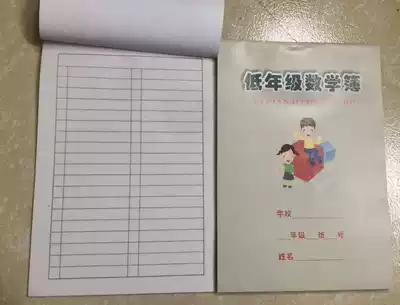 低年级数学簿
学校
年级 班 号
姓名